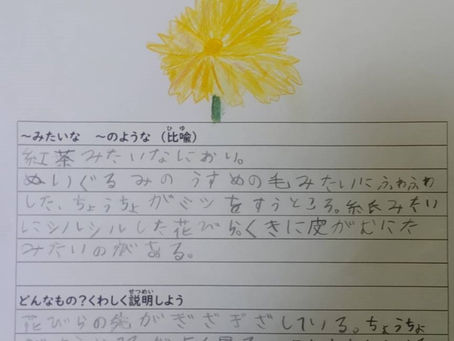 ~みたいな ~のような（比喩）
ひゆ
紅茶みたいなにおい。
ぬいぐるみのうすめの毛みたいにふわふわ
した、ちょうちょがミツをすうところ。紙みたい
にシルシルした花びら。くきに皮がむけた
みたいのがある。
どんなもの？くわしく説明しよう
せつめい
花びらの先がぎざぎざしている。ちょうちょ